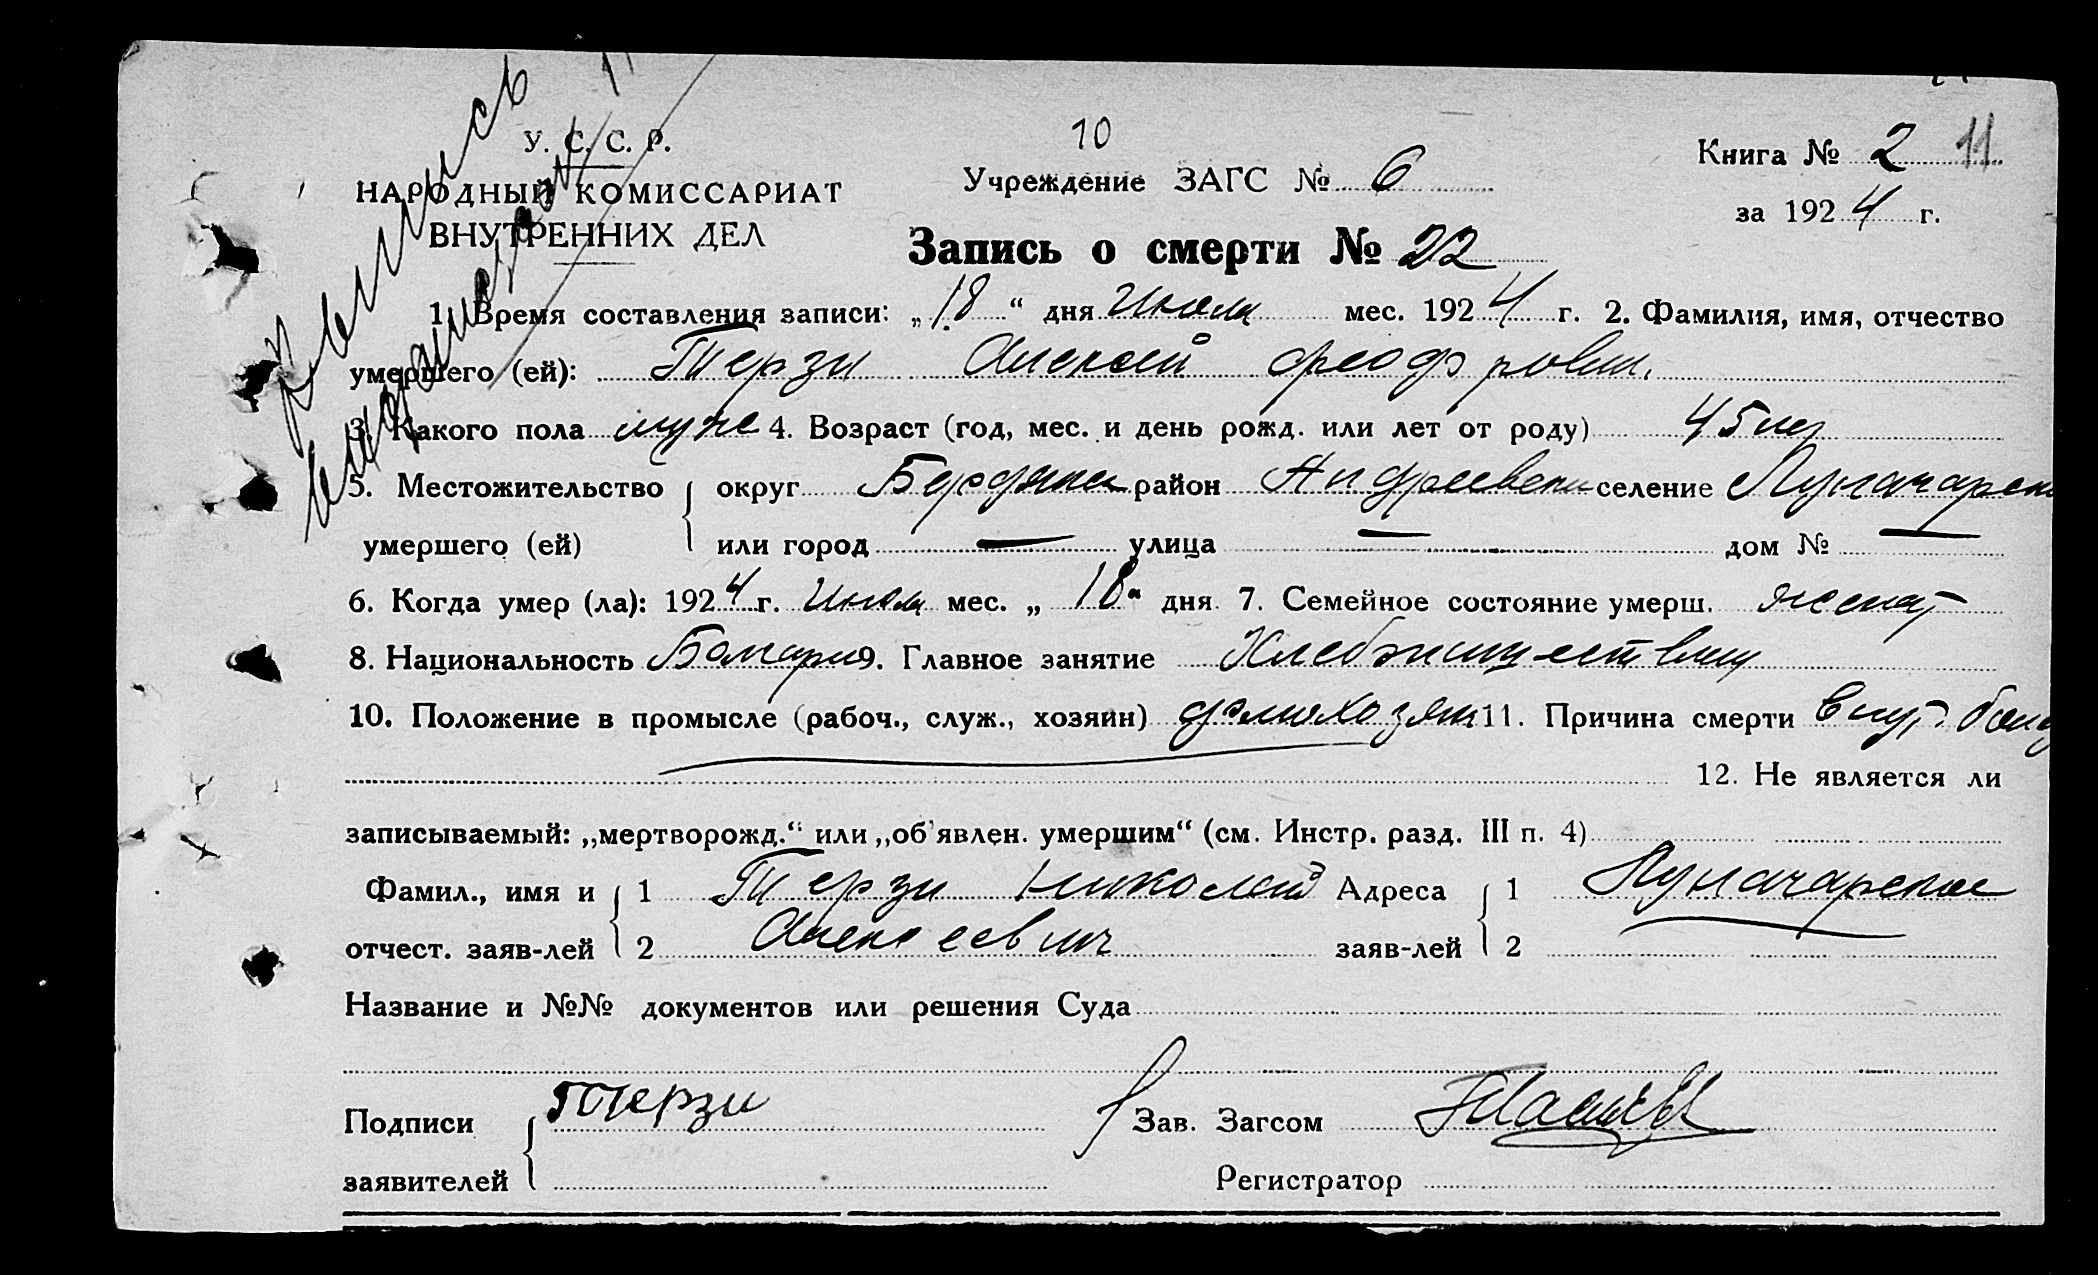 У. С. С. Р.
НАРОДНЫЙ КОМИССАРИАТ
ВНУТРЕННИХ ДЕЛ
10
Учреждение ЗАГС № 6
Книга № 2 11
за 1924 г.
Запись о смерти № 22
1. Время составления записи: „18“ дня Июля мес. 1924 г. 2. Фамилия, имя, отчество
умершего (ей): Терзи Алексей Феодорович.
3. Какого пола муж 4. Возраст (год, мес. и день рожд. или лет от роду) 45 лет
5. Местожительство округ Бердянск район Андреевски селение Луначарск
умершего (ей) или город — улица — дом № —
6. Когда умер (ла): 1924 г. Июля мес. „18“ дня 7. Семейное состояние умерш. женат
8. Национальность Болгарин 9. Главное занятие Хлебопашеством
10. Положение в промысле (рабоч., служ., хозяин) домохозяин 11. Причина смерти внут.
12. Не является ли
записываемый: „мертворожд.“ или „об'явлен. умершим“ (см. Инстр. разд. III п. 4)
Фамил., имя и 1 Терзи Николай Адреса 1 Луначарское
отчест. заяв-лей 2 Алексеевич заяв-лей 2
Название и №№ документов или решения Суда
Подписи Терзи Зав. Загсом
заявителей Регистратор